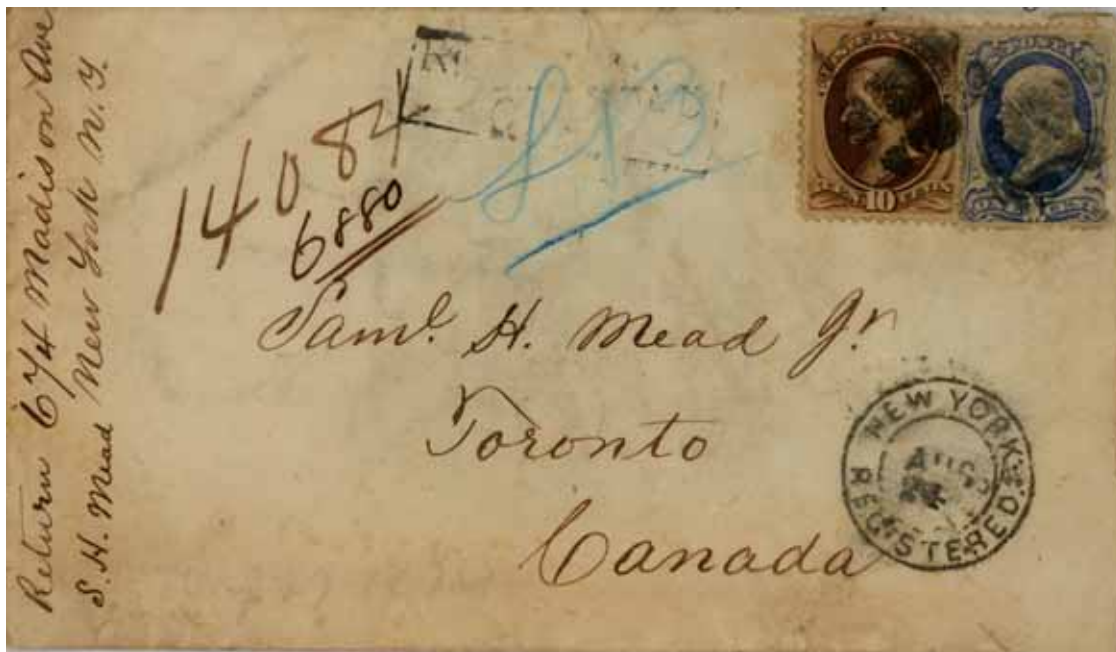 Return 674 Madison Ave
S. H. Mead New York N. Y.
14084
6880
10
Saml. H. Mead Jr.
Toronto
Canada
NEW YORK
AUG
REGISTERED